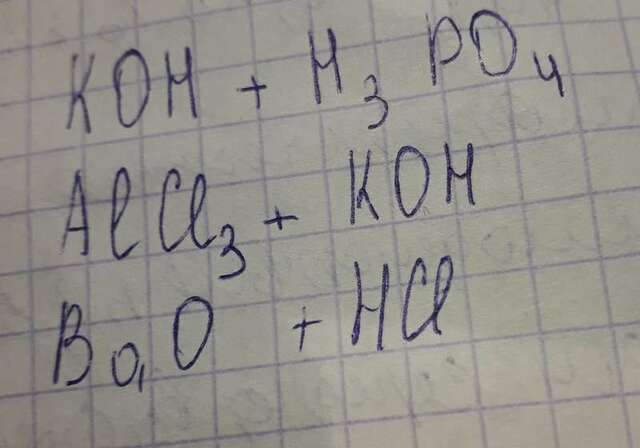 KOH + H₃PO₄
AlCl₃ + KOH
BaO + HCl